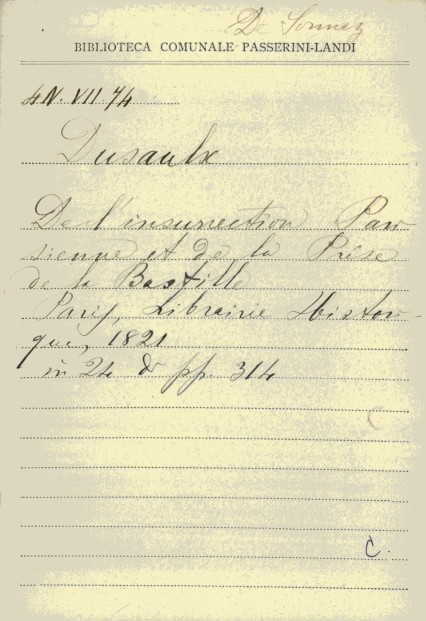 BIBLIOTECA COMUNALE PASSERINI-LANDI
4N. VII. 74
Dusaulx
De l'insurrection Pari-
sienne et de la Prise
de la Bastille
Paris, Librairie Histori-
que, 1821
in 24 pp. 314
C.